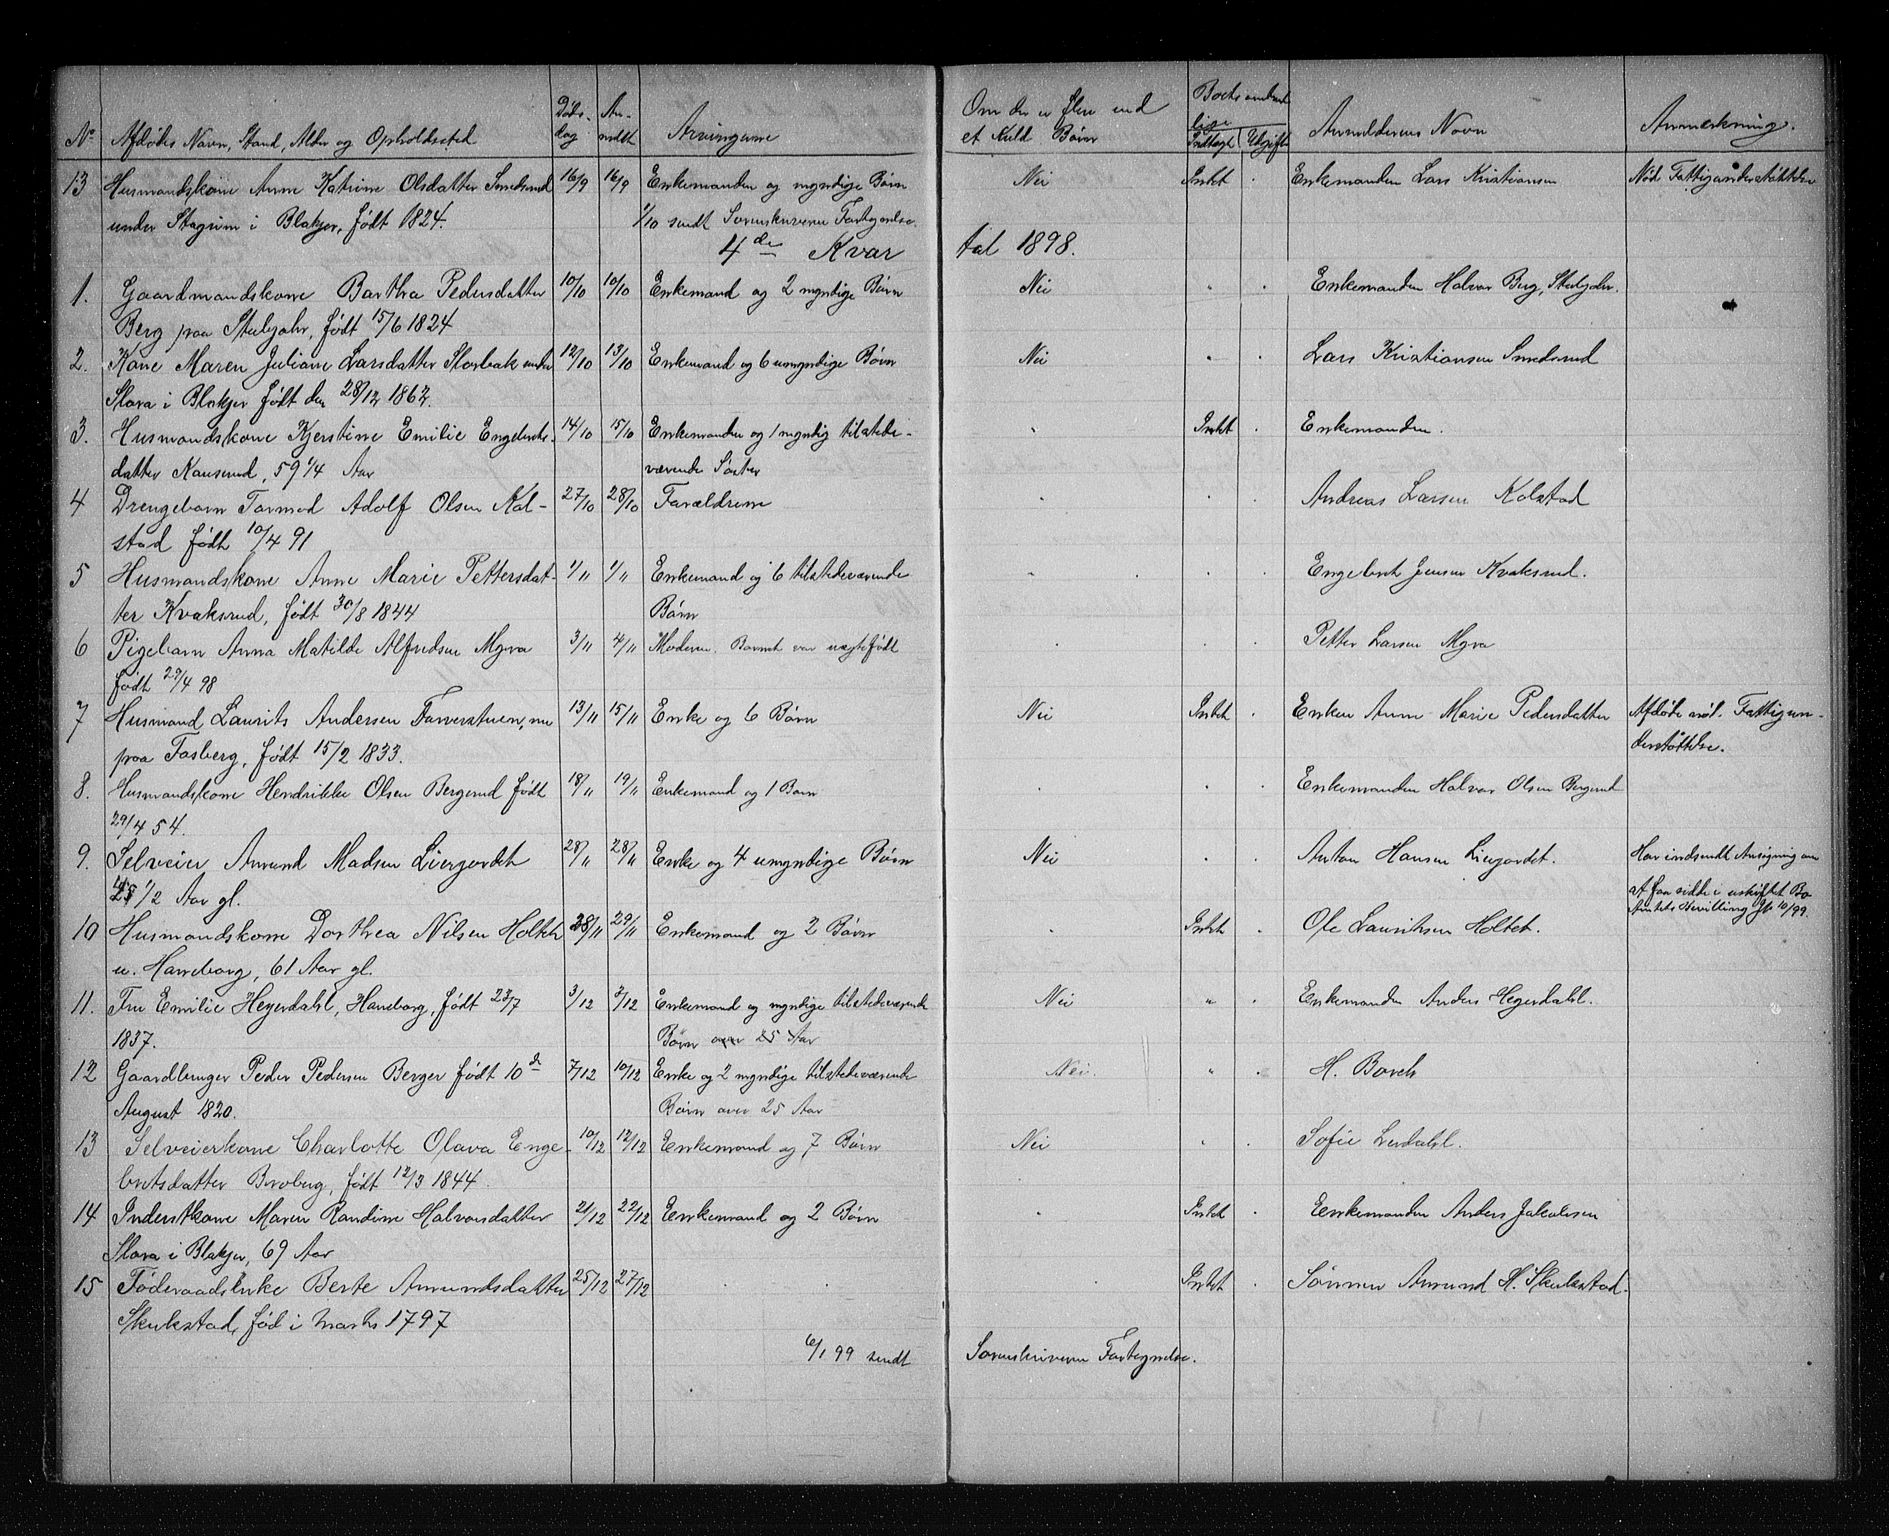 No Afdødes Navn, Stand, Alder og Opholdssted Dødsdag Anmeldt Arvingerne Om der er flere end et Kuld Børn Indtægt Udgift Anmelderens Navn Anmerkning.
13 Husmandskone Anne Katrine Olsdatter Smedsrud 16/9 16/9 Enkemanden og myndige Børn Nei Intet Enkemanden Lars Kristiansen Nød Fattigunderstøttelse
under i Blakjer, født 1824. 1/10 sendt Sorenskriveren Fortegnelse.
4de Kvartal 1898.
1. Gaardmandskone Barthea Pedersdatter 10/10 10/10 Enkemand og 2 myndige Børn Nei " . Enkemanden Halvor Berg,
Berg paa født 15/6 1824
2. Kone Maren Juliane Larsdatter Storbak under 12/10 13/10 Enkemand og 6 umyndige Børn Nei " . Lars Kristiansen Smedsrud
Slora i Blakjer født den 28/12 1862.
3. Husmandskone Kjerstine Emilie Engebrets- 14/10 15/10 Enkemanden og 1 myndig tilstede- " Intet . Enkemanden.
datter Kanserud, 59 1/4 Aar værende Søster
4 Drengebarn Tormod Adolf Olsen Kol- 27/10 28/10 Forældrene . . . Andreas Larsen Kolstad
stad født 10/4 91
5 Husmandskone Anne Marie Pettersdat- 1/11 1/11 Enkemand og 6 tilstedeværende " . . Engebret Jensen Kvaksrud.
ter Kvaksrud, født 30/8 1844 Børn
6 Pigebarn Anna Matilde Alfredsen Myra 3/11 4/11 Moderen. Barnet var uægtefødt . . . Petter Larsen Myra
født 29/4 98
7 Husmand Laurits Andersen Farverstuen, nu 13/11 15/11 Enke og 6 Børn Nei Intet . Enken Anne Marie Pedersdatter Afdøde nød. Fattigun-
paa Fosberg, født 15/2 1833. derstøttelse.
8. Husmandskone Hendrikke Olsen Bergerud født 18/11 19/11 Enkemand og 1 Barn . . . Enkemanden Halvor Olsen Bergerud
29/4 54.
9. Selveier Amund Madsen Liergordet 28/11 28/11 Enke og 4 umyndige Børn Nei . . Anton Hansen Liergordet. Har indsendt Ansøgning om
1/2 Aar gl. at faa sidde i uskiftet Bo
10 Husmandskone Dorthea Nilsen Holtet 28/11 29/11 Enkemand og 2 Børn . Intet . Ole Lauritsen Holtet. Amtets Bevilling 10/1 99.
u. Haneborg, 61 Aar gl.
11. Fru Emilie Heyerdahl, Haneborg, født 23/7 3/12 3/12 Enkemand og myndige tilstedeværende Nei " . Enkemanden Anders Heyerdahl.
1837. Børn over 25 Aar
12 Gaardbruger Peder Pedersen Berger født 10de 7/12 10/12 Enke og 2 myndige tilstedeværende Nei. " . H. Borch
August 1820. Børn over 25 Aar
13 Selveierkone Charlotte Olava Enge- 10/12 12/12 Enkemand og 7 Børn Nei . . Sofie Lerdahl.
bretsdatter Broberg, født 12/3 1844.
14 Inderstkone Maren Randine Halvorsdatter 21/12 22/12 Enkemand og 2 Børn . Intet . Enkemanden Anders Jakobsen
Slora i Blakjer, 69 Aar
15 Føderaadsenke Berte Amundsdatter 25/12 27/12 . . Intet . Sønnen Amund H. Skukstad.
Skukstad, fød i Marts 1797
6/1 99 sendt Sorenskriveren Fortegnelse.